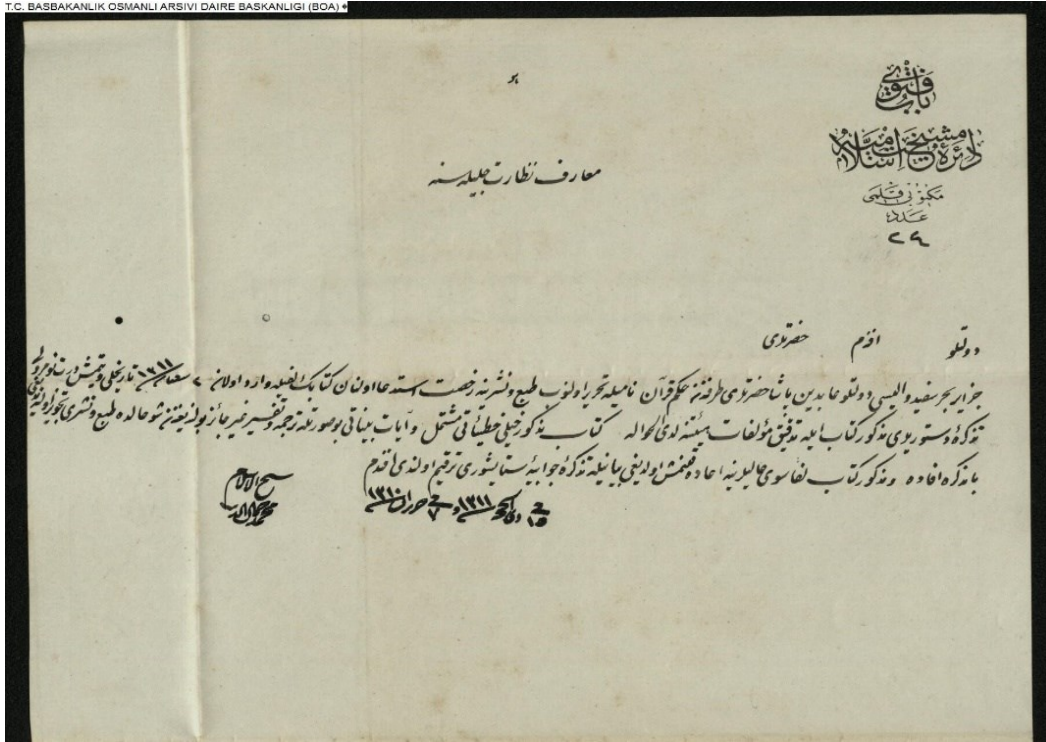 T.C. BASBAKANLIK OSMANLI ARSIVI DAIRE BASKANLIGI (BOA)
باب فتوى
دائرهٔ مشيخت اسلاميه
مكتوبى قلمى
عدد
٢٤
معارف نظارت جليله سنه
دولتلو افندم حضرتلرى
جزاير بحر سفيد واليسى دولتلو عابدين پاشا حضرتلرى طرفندن حكم قرآن ناميله تحرير اولنوب طبع ونشرينه رخصت استدعا اولنان كتابك لفيله وارد اولان ١٣١١ تاريخلى ويتمش درت نومرولى
تذكرهٔ دستوريلرى مذكور كتاب ايله تدقيق مؤلفات هيئتنه لدى الحواله كتاب مذكور خيلى خطيئاتى مشتمل وآيات بيناتى بو صورتله ترجمه وتفسير غير جائز بولنديغندن شو حالده طبع ونشرى تجويز اولنه ميه جغى
بامذكره افاده ومذكور كتاب لفا سوى عاليلرينه اعاده قلنمش اولديغى بيانيله تذكرهٔ جوابيهٔ ستايشورى ترقيم اولندى افندم
شيخ الاسلام
محمد جمال الدين
فى ١٥ ذى الحجه ١٣١١ وفى ٧ حزيران ١٣١٠